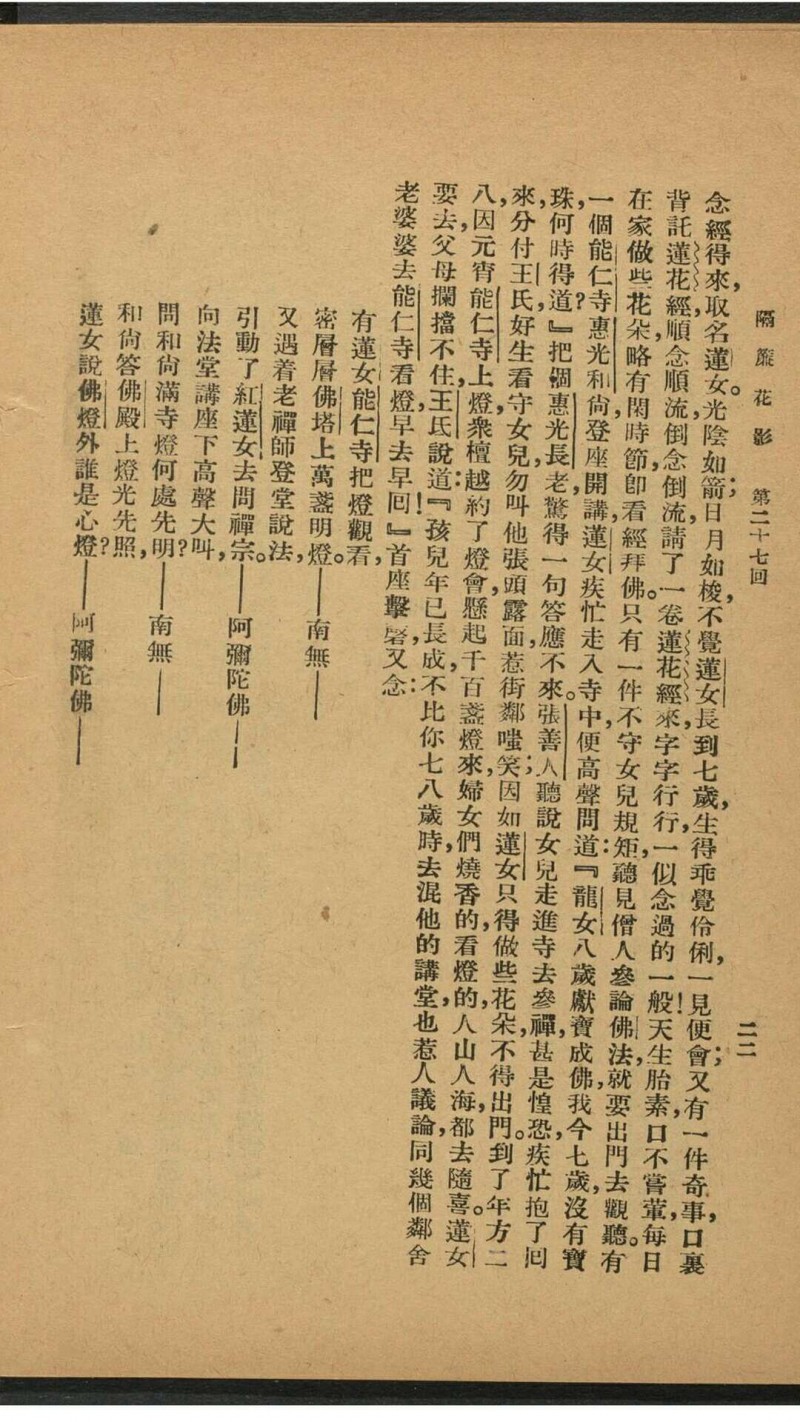 隔簾花影 第二十七回 二二
念經得來，取名蓮女。光陰如箭；日月如梭，不覺蓮女長到七歲，生得乖覺伶俐，一見便會；又有一件奇事，口裏
背託蓮花經，順念順流，倒念倒流，請了一卷蓮花經來，字字行行，一似念過的一般！天生胎素，口不嘗葷，每日
在家做些花朵，略有閑時節，卽看經拜佛。只有一件不守女兒規矩，聽見僧人參論佛法，就要出門去觀聽。有
一個能仁寺惠光和尙登座開講，蓮女疾忙走入寺中，便高聲問道：『龍女八歲獻寶成佛，我今七歲，沒有寶
珠，何時得道？』把個惠光長老，驚得一句答應不來。張善人聽說女兒走進寺去參禪，甚是惶恐，疾忙抱了囘
來，分付王氏，好生看守女兒，勿叫他張頭露面，惹街鄰嗤笑；因如蓮女只得做些花朵，不得出門。到了年方二
八，因元宵能仁寺上燈，衆檀越約了燈會，懸起千百盞燈來，婦女們燒香的，看燈的，人山人海，都去隨喜。蓮女
要去，父母攔擋不住，王氏說道：『孩兒年已長成，不比你七八歲時，去混他的講堂，也惹人議論，同幾個鄰舍
老婆婆去能仁寺看燈，早去早囘！』首座擊磬，又念：
有蓮女能仁寺把燈觀看，
密層層佛塔上萬盞明燈。——南無——
又遇着老禪師登堂說法，
引動了紅蓮女去問禪宗。——阿彌陀佛——
向法堂講座下高聲大叫，
問和尙滿寺燈何處先明？——南無——
和尙答佛殿上燈光先照，
蓮女說佛燈外誰是心燈？——阿彌陀佛——